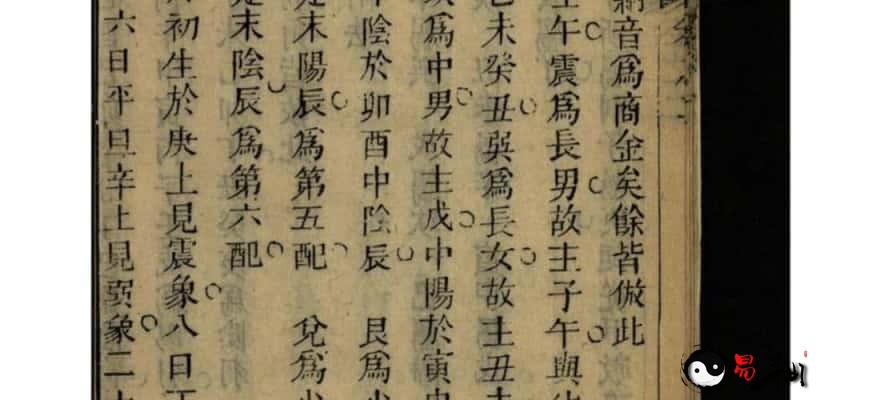 音爲商金矣餘皆倣此
午震爲長男故主子午與
未癸丑巽爲長女故主丑
爲中男故主戊中陽於寅
陰於卯酉中陰辰 艮爲
末陽辰爲第五配 兌爲
末陰辰爲第六配
初生於庚上見震象八日
六日平旦辛上見巽象二
易